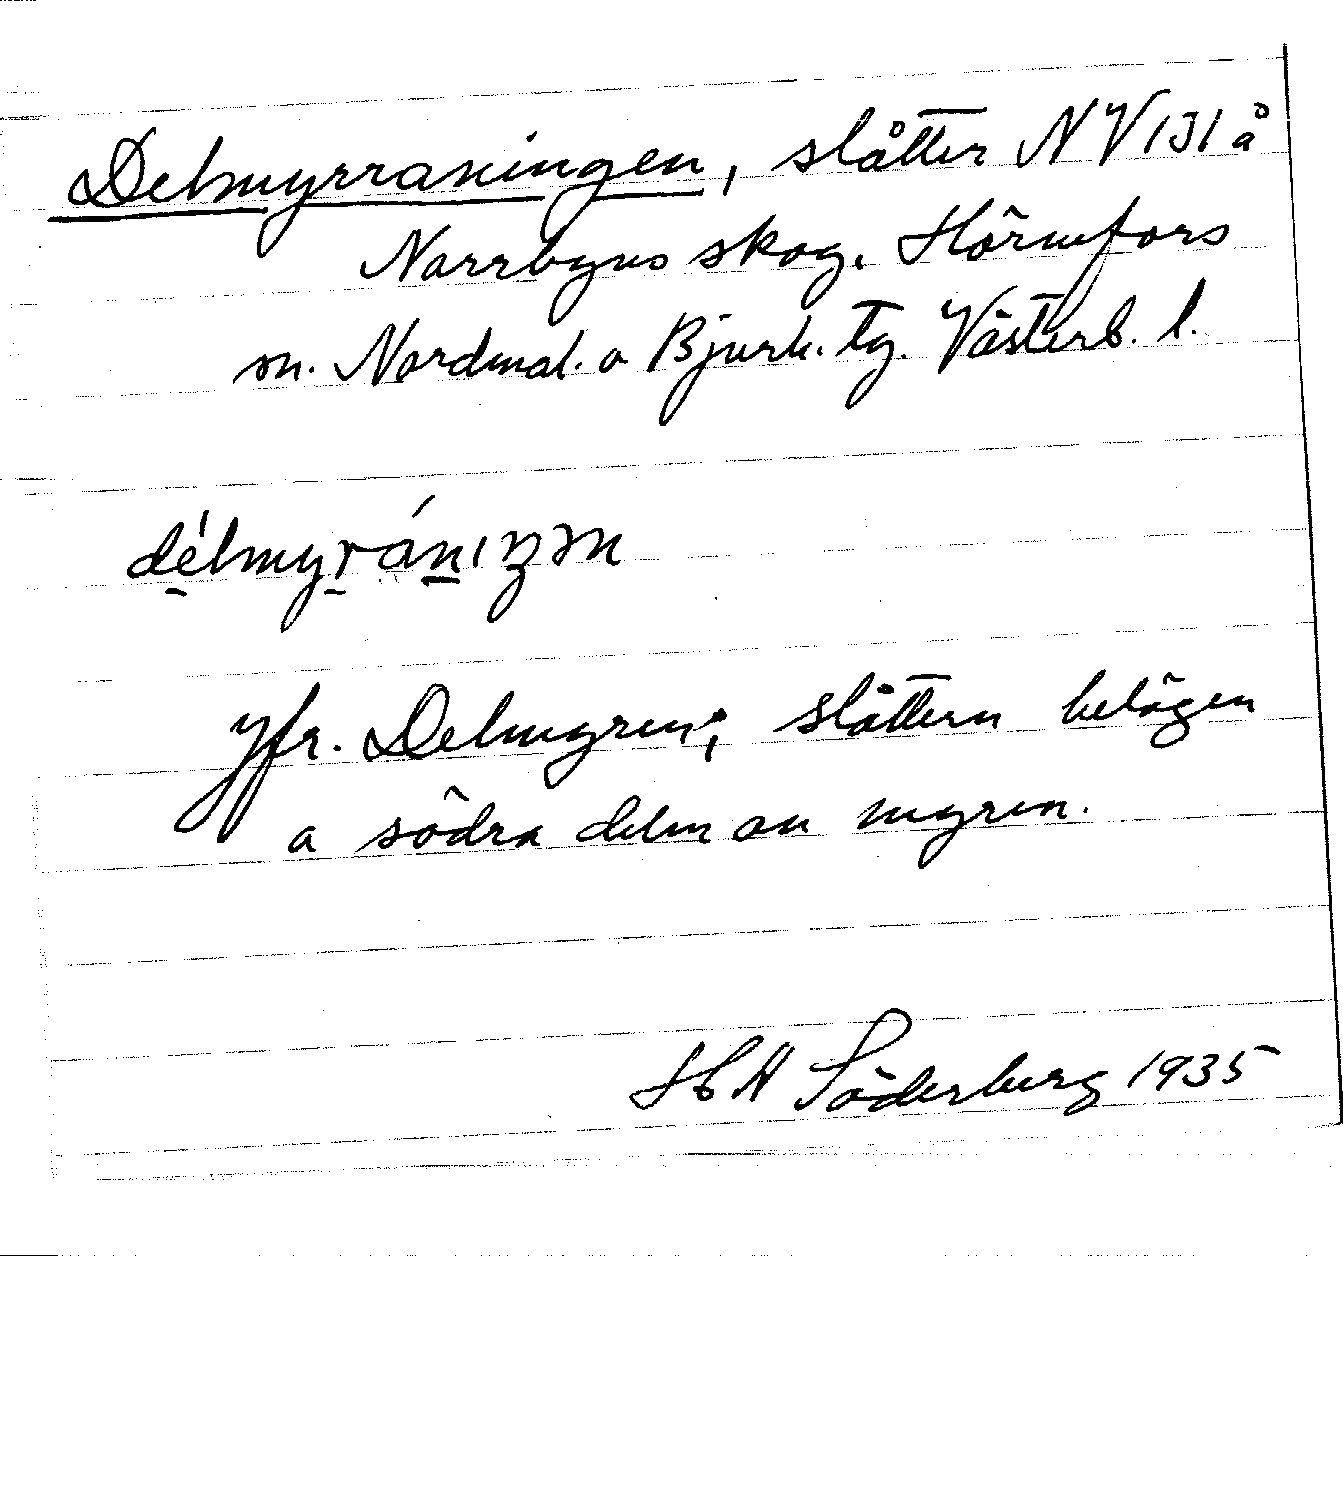 Delmyrraningen, slåtter NV131 å
Norrbyns skog. Hörnefors
sn. Nordmal. o Bjurh. tg. Västerb. l.
délmyránıŋən
Jfr. Delmyren; slåttern belägen
å södra delen av myren.
H A Söderberg 1935